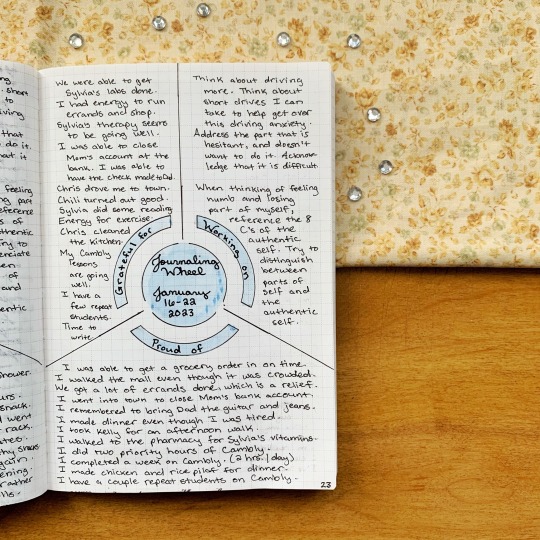 We were able to get
Sylvia's labs done.
I had energy to run
errands and shop.
Sylvia's therapy seems
to be going well.
I was able to close
Mom's account at the
bank. I was able to
have the check made to Dad.
Chris drove me to town.
Chili turned out good.
Sylvia did some reading.
Energy for exercise.
Chris cleaned
the kitchen.
My Cambly
lessons
are going
well.
I have a
few repeat
students.
Time to
write.
Grateful for
Think about driving
more. Think about
short drives I can
take to help get over
this driving anxiety.
Address the part that is
hesitant, and doesn't
want to do it. Acknow-
ledge that it is difficult.
When thinking of feeling
numb and losing
part of myself,
reference the 8
C's of the
authentic
self. Try to
distinguish
between
parts of
self and
the
authentic
self.
Working on
Journaling
Wheel
January
16-22
2023
Proud of
I was able to get a grocery order in on time.
I walked the mall even though it was crowded.
We got a lot of errands done, which is a relief.
I went into town to close Mom's bank account.
I remembered to bring Dad the guitar and jeans.
I made dinner even though I was tired.
I took Kelly for an afternoon walk.
I walked to the pharmacy for Sylvia's vitamins.
I did two priority hours of Cambly.
I completed a week on Cambly. (2 hrs./day)
I made chicken and rice pilaf for dinner.
I have a couple repeat students on Cambly.
23